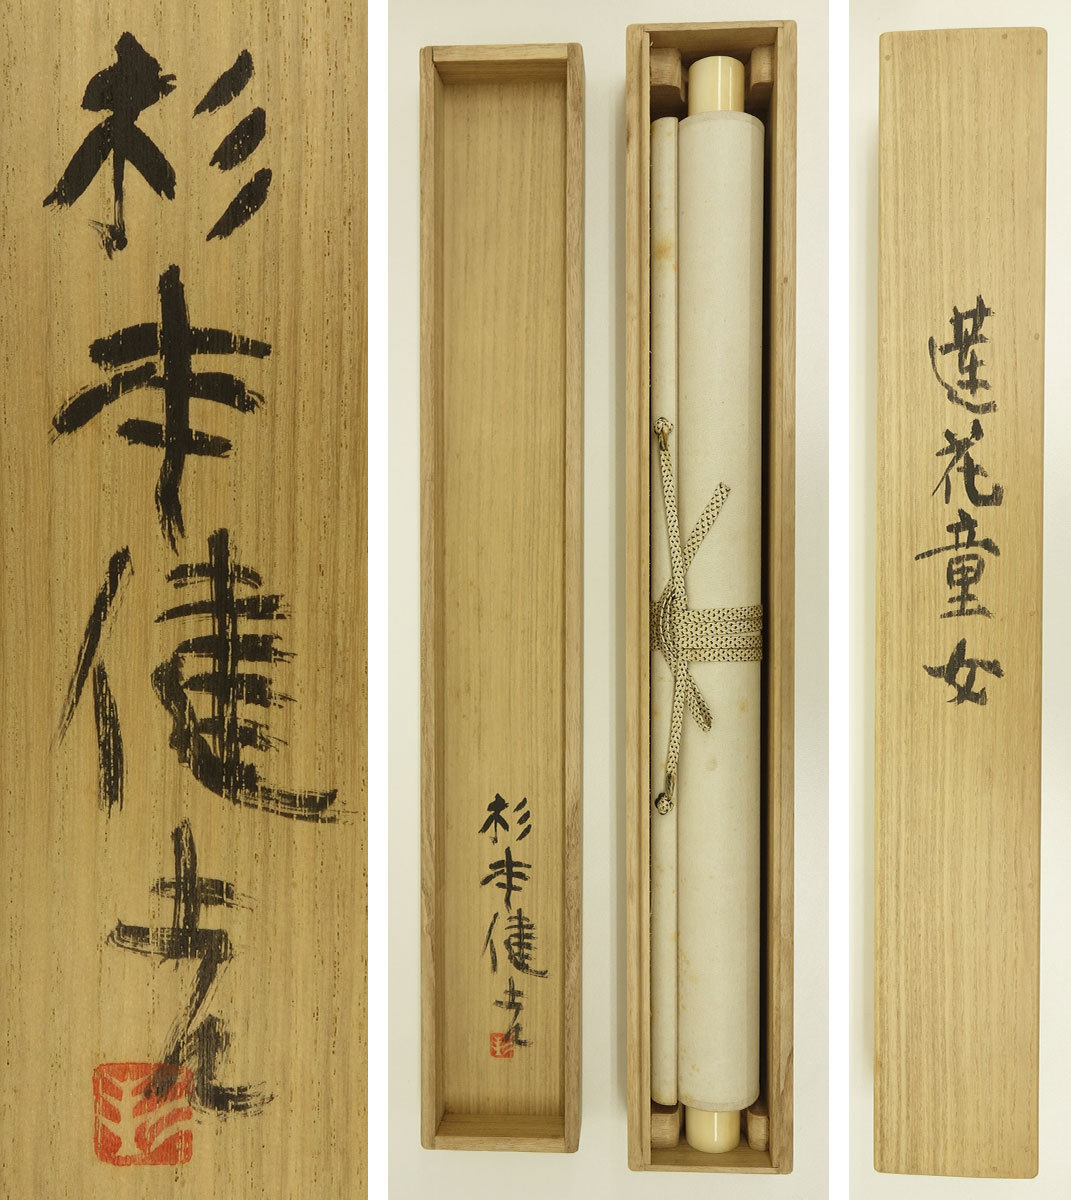 杉本健吉
杉
杉本健吉
杉
蓮花童女